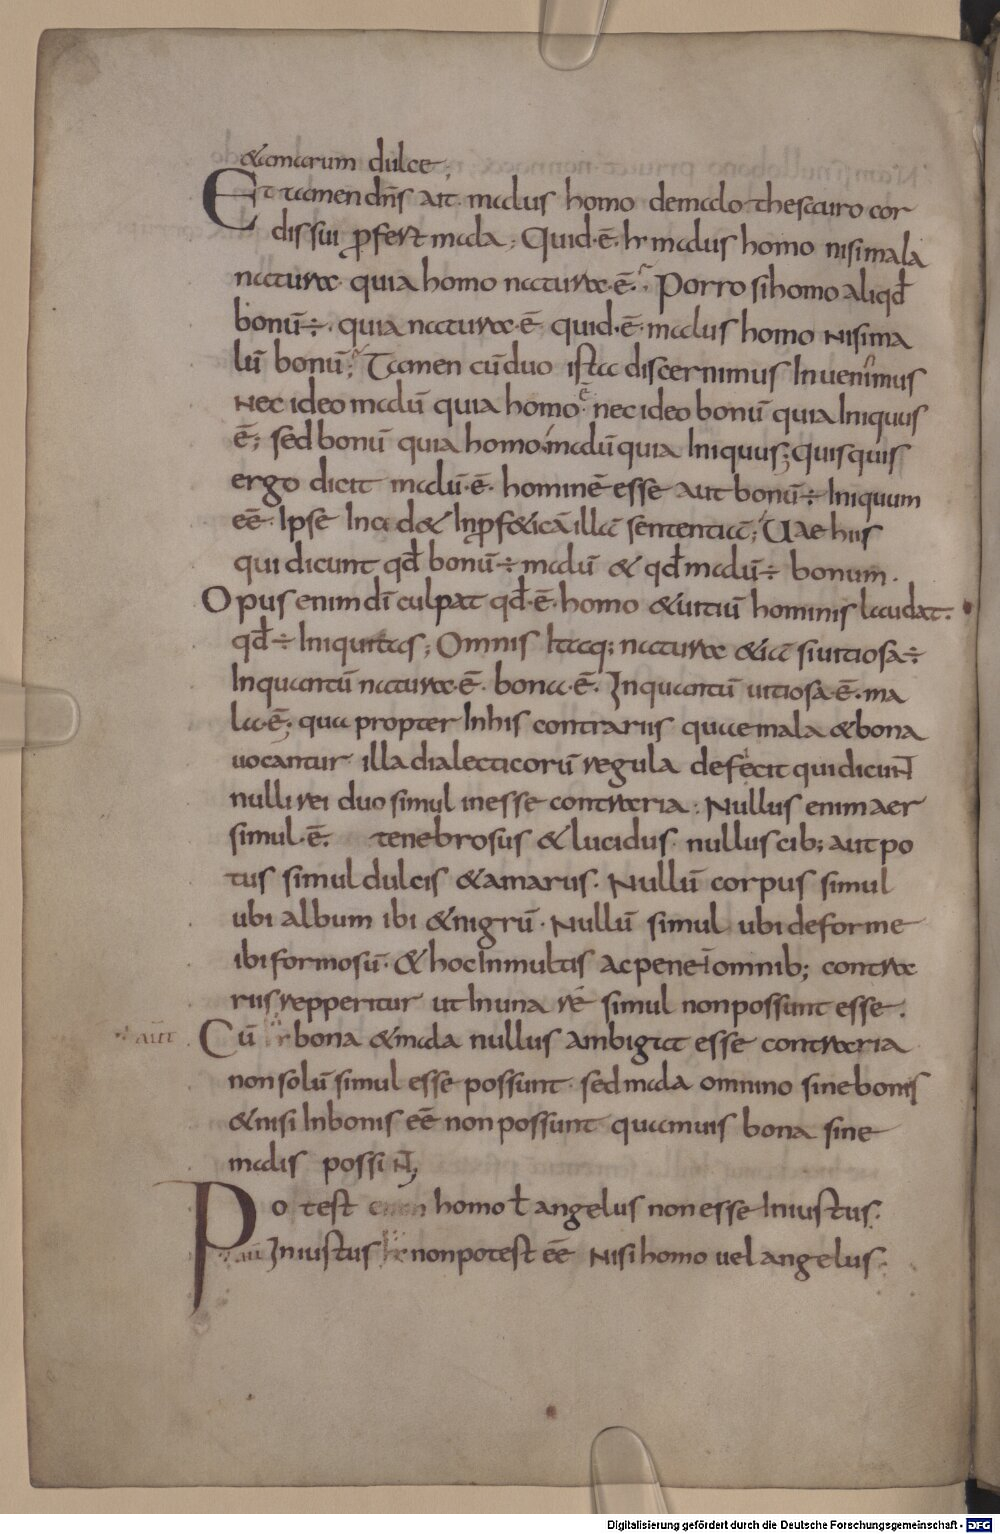 &amarum dulce;
Et tamen dn̄s ait. malus homo demalo thesauro cor
dis sui ꝓfert mala; Quid·ē· hr malus homo nisi mala
naturae. quia homo naturae·ē·; Porro si homo aliqđ
bonū÷. quia naturae·ē· quid·ē· malus homo nisi ma
lū bonū; Tamen cū duo ista discernimus Inuenimus
nec ideo malū quia homo ē· nec ideo bonū quia Iniquus
ē; sed bonū quia homo. malū quia Iniquus; Quisquis
ergo dicit malū·ē· hominē esse aut bonū÷ Iniquum
eē. Ipse Incid& Inꝓf&icā illā sententiā; Uae hiis
qui dicunt qđ bonū÷ malū & qđ malū÷ bonum.
Opus enim dī culpat qđ·ē· homo &uitiū hominis laudat.
qđ÷ Iniquitas; Omnis Itaq; naturae &iā si uitiosa÷
Inquantū naturae·ē· bona·ē· Inquantū uitiosa·ē· ma
la·ē; qua propter Inhis contrariis quae mala &bona
uocantur illa dialecticorū regula deficit qui dicuNT
nulli rei duo simul inesse contraria. Nullus enim aer
simul·ē· tenebrosus & lucidus. nullus cib; aut po
tus simul dulcis &amarus. Nullū corpus simul
ubi album ibi &nigrū. Nullū simul ubi deforme
ibi formosū. & hoc Inmultis ac pene īomnib; contra
riis repperitur ut Inuna rē simul non possunt esse.
aūt Cū bona &mala nullus ambigat esse contraria
non solū simul esse possunt. sed mala omnino sine bonis
&nisi Inbonis eē non possunt quamuis bona sine
malis possiNT;
Potest homo ł angelus non esse Iniustus.
aū Iniustus non potest eē nisi homo uel angelus.
Digitalisierung gefördert durch die Deutsche Forschungsgemeinschaft - DFG